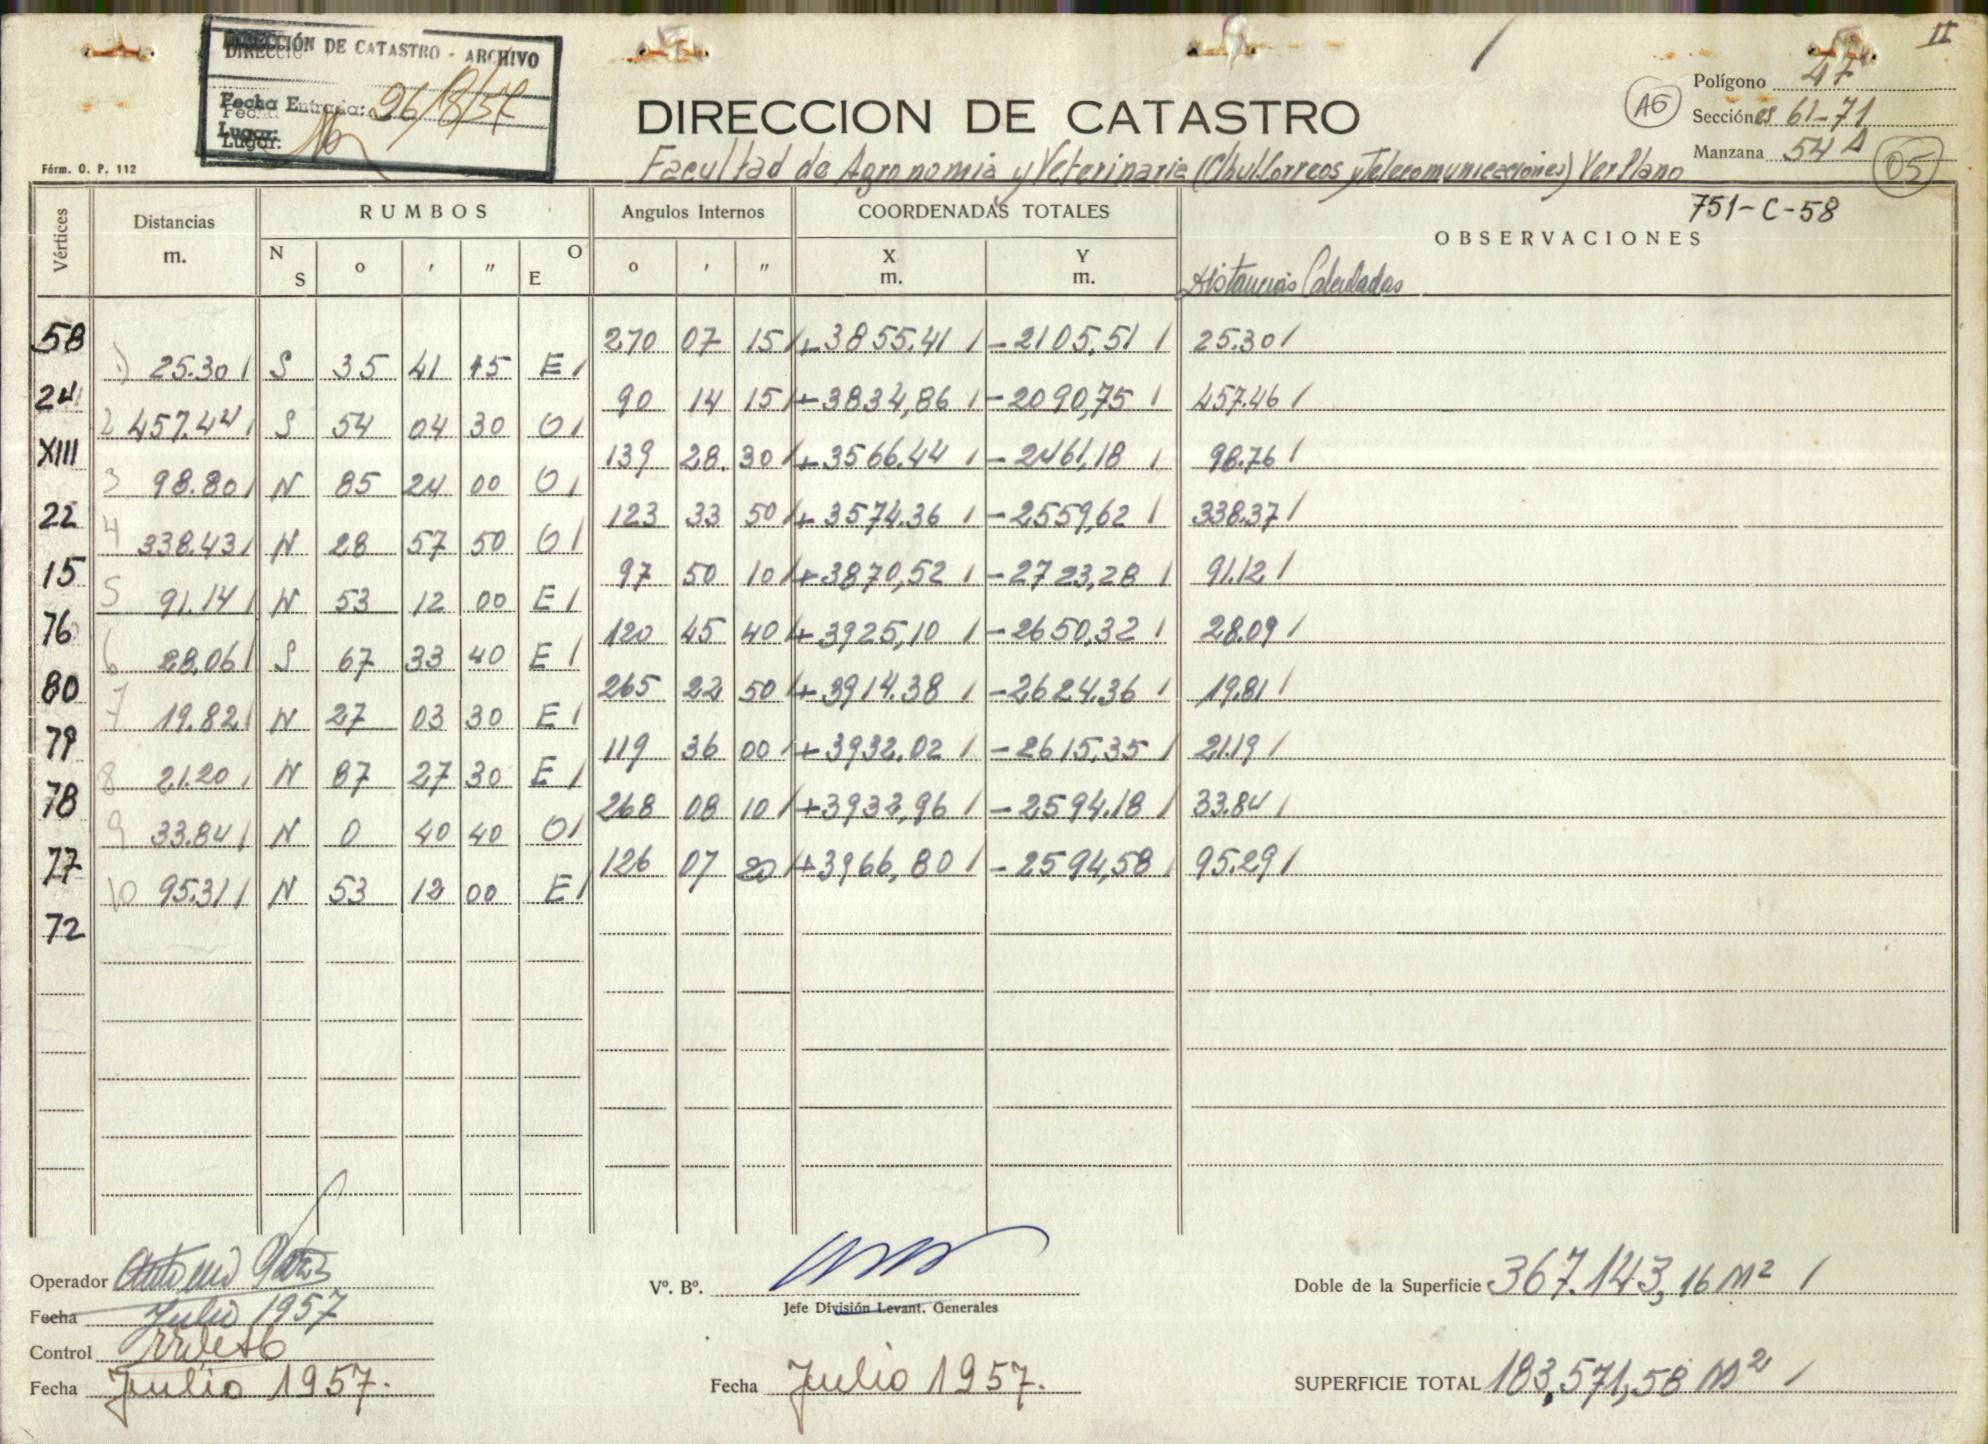 II
DIRECCIÓN DE CATASTRO - ARCHIVO
Fecha Entrada: 26/8/57
Lugar:
Polígono 47
Secciónes 61-71
Manzana 54 A
A6
05
DIRECCION DE CATASTRO
Fórm. O. P. 112
Facultad de Agronomia y Veterinaria (Club Correos y Telecomunicaciones) Ver Plano
751-C-58
Vértices Distancias m. RUMBOS Angulos Internos COORDENADAS TOTALES OBSERVACIONES
N S o ' " O E o ' " X m. Y m. Distancias Calculadas
58 270 07 15 +3855,41 -2105,51 25.30
1) 25.30 S 35 41 15 E
24 90 14 15 +3834,86 -2090,75 457.46
2 457.44 S 54 04 30 O
XIII 139 28 30 +3566.44 -2461,18 98.76
3 98.80 N 85 24 00 O
22 123 33 50 +3574.36 -2559,62 338.37
4 338.43 N 28 57 50 O
15 97 50 10 +3870,52 -2723,28 91.12
5 91.14 N 53 12 00 E
76 120 45 40 +3925,10 -2650,32 28.09
6 28,06 S 67 33 40 E
80 265 22 50 +3914.38 -2624.36 19.81
7 19.82 N 27 03 30 E
79 119 36 00 +3932.02 -2615,35 21.19
8 21.20 N 87 27 30 E
78 268 08 10 +3932,96 -2594.18 33.84
9 33.84 N 0 40 40 O
77 126 07 20 +3966,80 -2594,58 95.29
10 95.31 N 53 12 00 E
72
Operador
Fecha Julio 1957
Control
Fecha Julio 1957.
Vº. Bº.
Jefe División Levant. Generales
Fecha Julio 1957.
Doble de la Superficie 367.143,16 M2
SUPERFICIE TOTAL 183,571,58 M2